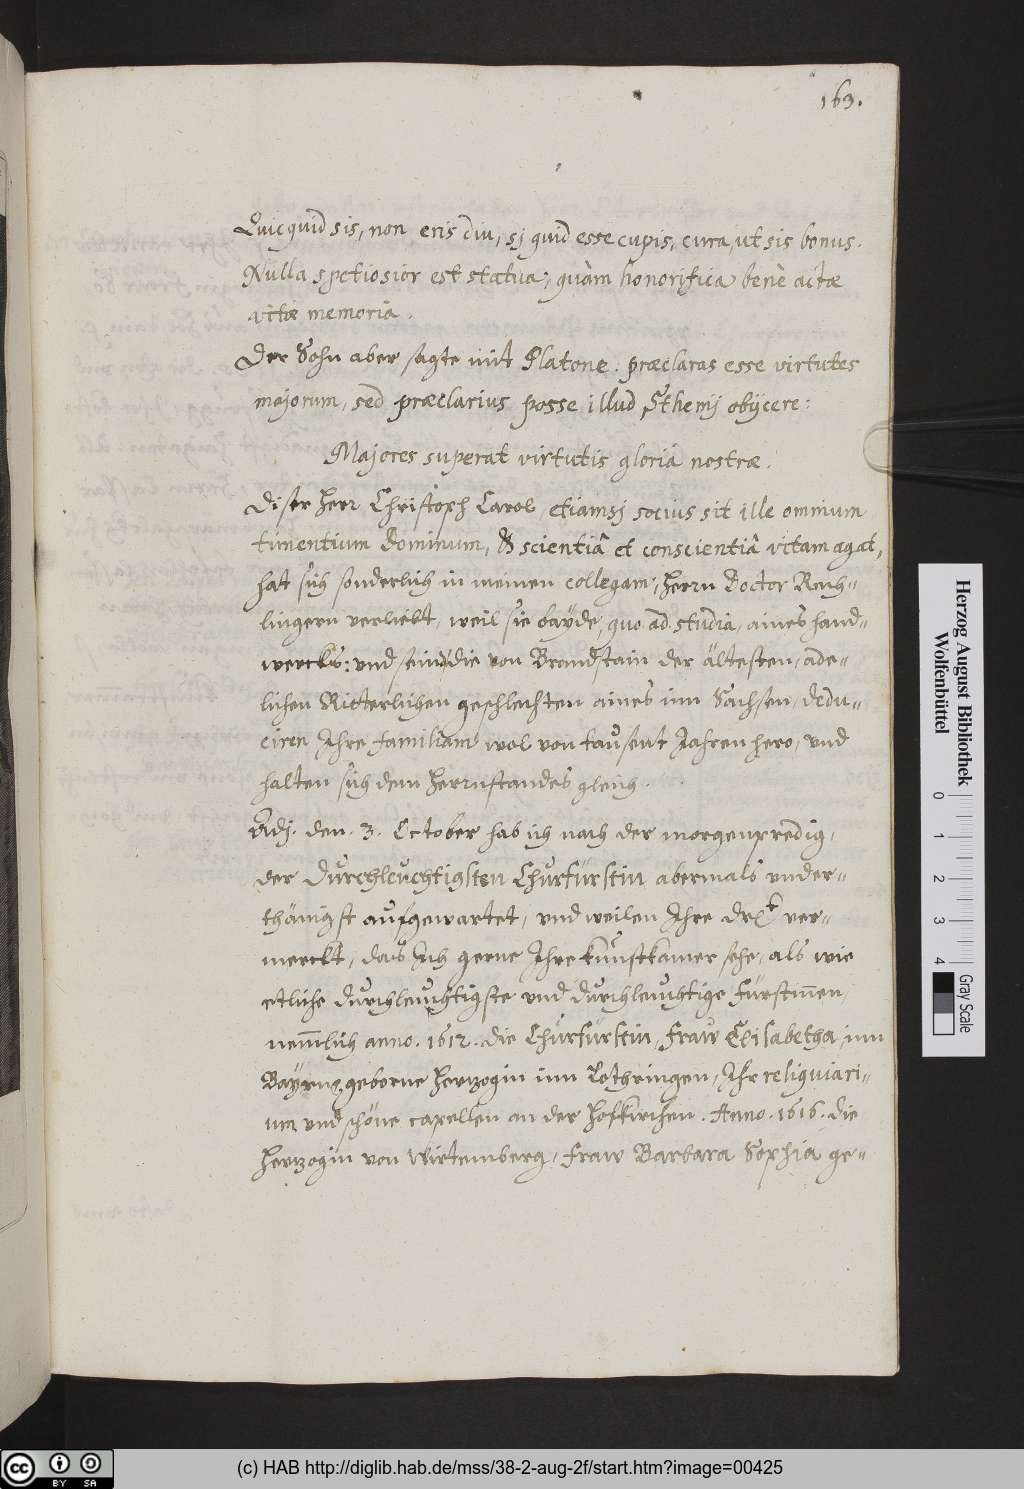 163.
Quicquid sis, non eris diu, sj quid esse cupis, cura, ut sis bonus.
Nulla spetiosior est statua, quàm honorifica benè actæ
vitæ memoria.
Der Sohn aber sagte mit Platone: præclaras esse virtutes
majorum, sed præclarius posse illud Sthenij obijcere:
Majores superat virtutis gloria nostræ.
Diser herr Christoph Carol, etiamsj socius sit ille omnium
timentium Dominum, & scientiâ et conscientiâ vitam agat,
hatt sich sonderlich in meinen collegam, herrn Doctor Rech-
lingern verliebt, weil sie bayde, quo ad studia, aines hand-
wercks: und sein die von Brandstain der ältesten, ade-
lichen Ritterlichen geschlechten aines inn Sachsen, dedu-
ciren Ihre familiam wol von tausent Jahren hero, und
halten sich dem herrnstandes gleich.
Adj. den. 3. October hab ich nach der morgenpredig,
der Durchleuchtigsten Churfürstin abermals under-
thänigst aufgewartet, und weilen Ihre Drl.t ver-
merckt, das Ich gerne Ihre kunstkamer sehe, als wie
etliche durchleuchtigste und durchleuchtige Fürstinen,
nemlich anno. 1612. die Churfürstin, fraw Elisabetha, inn
Bayrn, geborne hertzogin inn Lothringen, Ihr reliquiari-
um und schöne capellen an der hofkirchen. Anno. 1616. die
hertzogin von Wirtemberg, fraw Barbara Sophia ge-
Herzog August Bibliothek
Wolfenbüttel
0 1 2 3 4
Gray Scale
cc BY SA
(c) HAB http://diglib.hab.de/mss/38-2-aug-2f/start.htm?image=00425